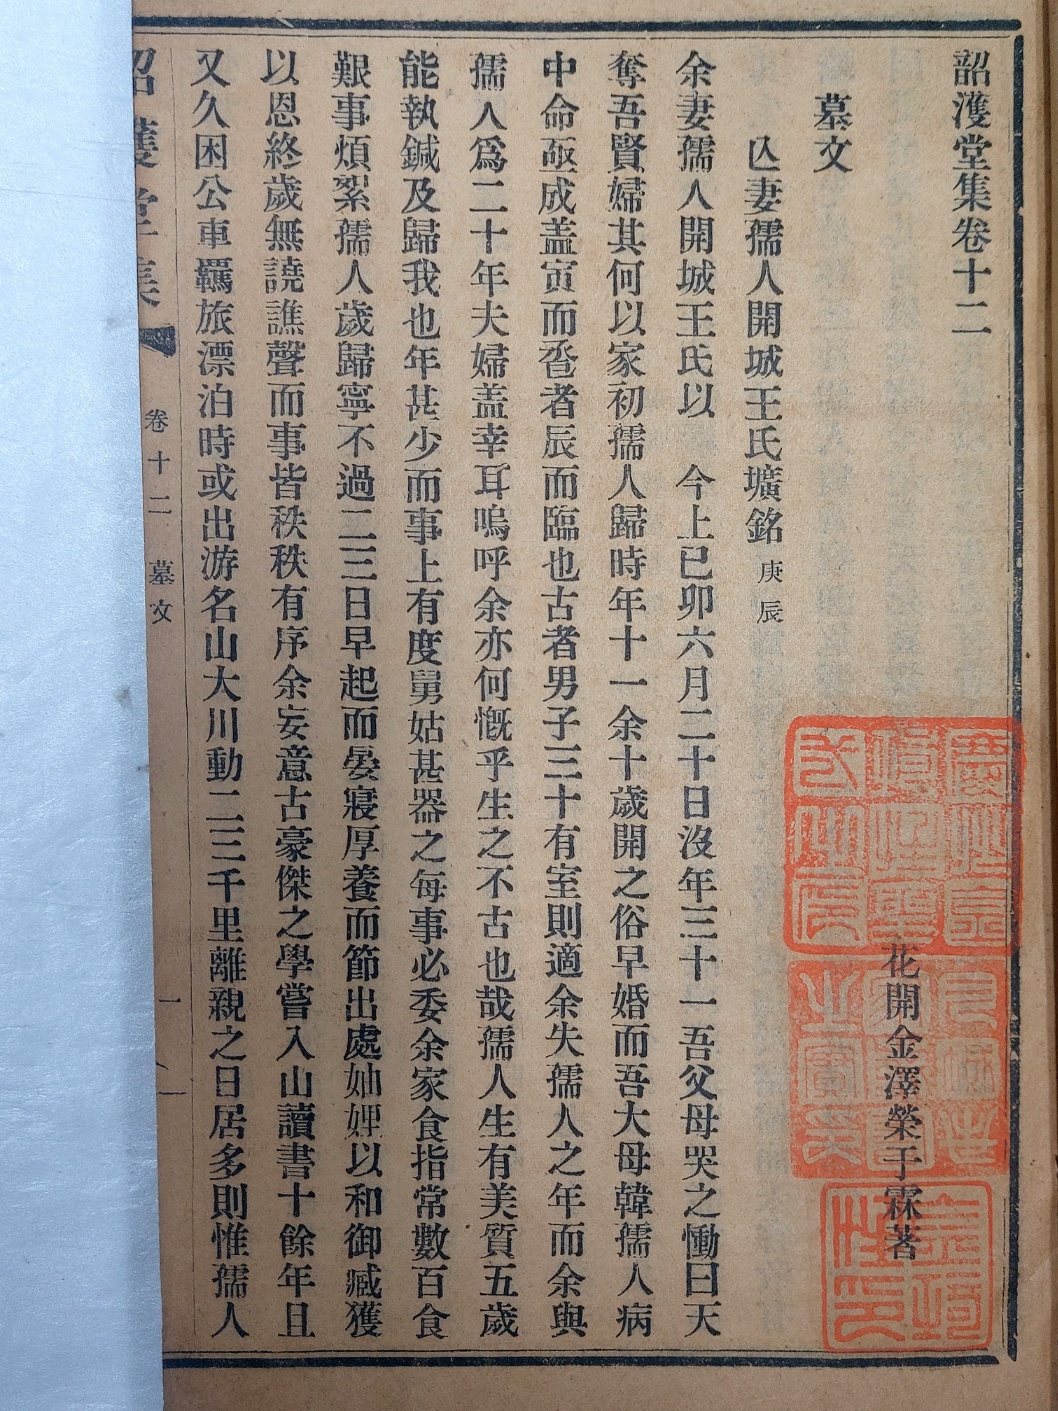 韶濩堂集卷十二
花開金澤榮于霖著
墓文
亾妻孺人開城王氏壙銘 庚辰
余妻孺人開城王氏以 今上已卯六月二十日沒年三十一吾父母哭之慟曰天
奪吾賢婦其何以家初孺人歸時年十一余十歲開之俗早婚而吾大母韓孺人病
中命亟成盖寅而巹者辰而臨也古者男子三十有室則適余失孺人之年而余與
孺人爲二十年夫婦盖幸耳嗚呼余亦何慨乎生之不古也哉孺人生有美質五歲
能執鍼及歸我也年甚少而事上有度舅姑甚器之每事必委余家食指常數百食
艱事煩絮孺人歲歸寧不過二三日早起而晏寢厚養而節出處妯娌以和御臧獲
以恩終歲無譊譙聲而事皆秩秩有序余妄意古豪傑之學嘗入山讀書十餘年且
又久困公車羈旅漂泊時或出游名山大川動二三千里離親之日居多則惟孺人
韶濩堂集
卷十二 墓文
一